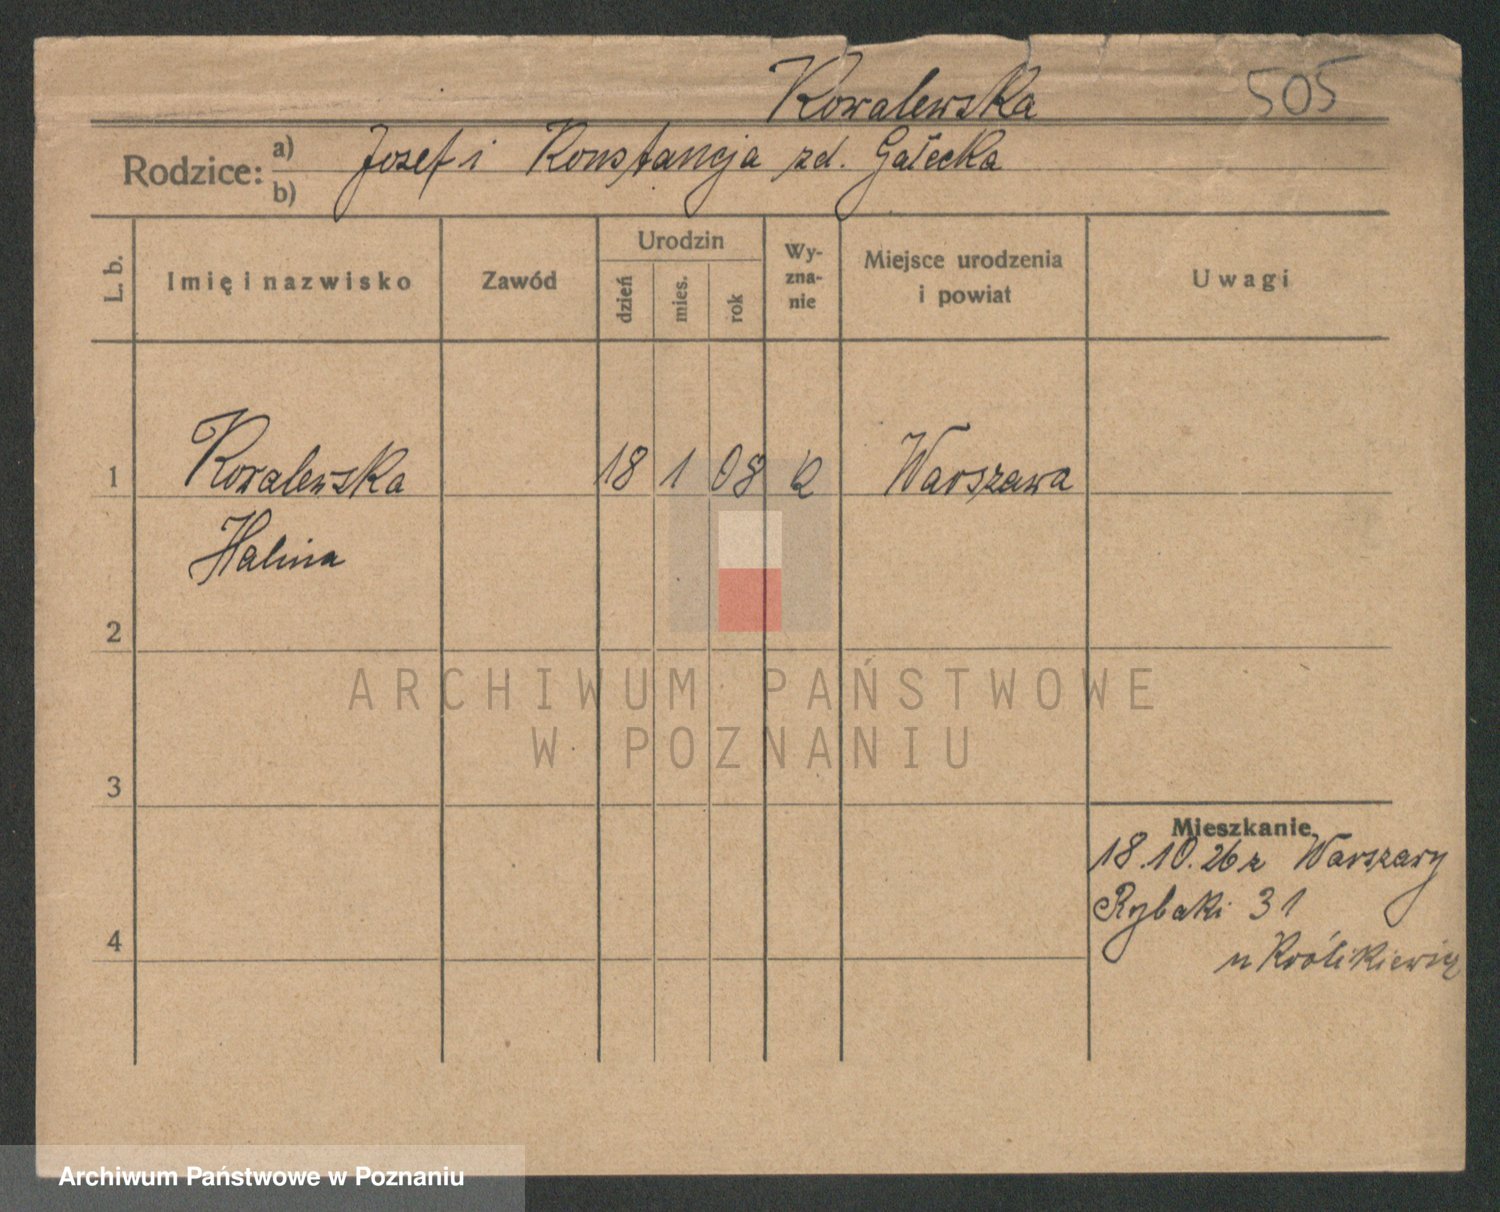 Kowalewska 505
Rodzice: a) Josef i Konstancja zd. Gałecka
b)
L. b. Imię i nazwisko Zawód Urodzin dzień mies. rok Wy-zna-nie Miejsce urodzenia i powiat Uwagi
1 Kowalewska 18 1 08 k Warszawa
Halina
2
ARCHIWUM PAŃSTWOWE
W POZNANIU
3
Mieszkanie
18.10.26 z Warszawy
Rybaki 31
4
u Królikiewicz
Archiwum Państwowe w Poznaniu